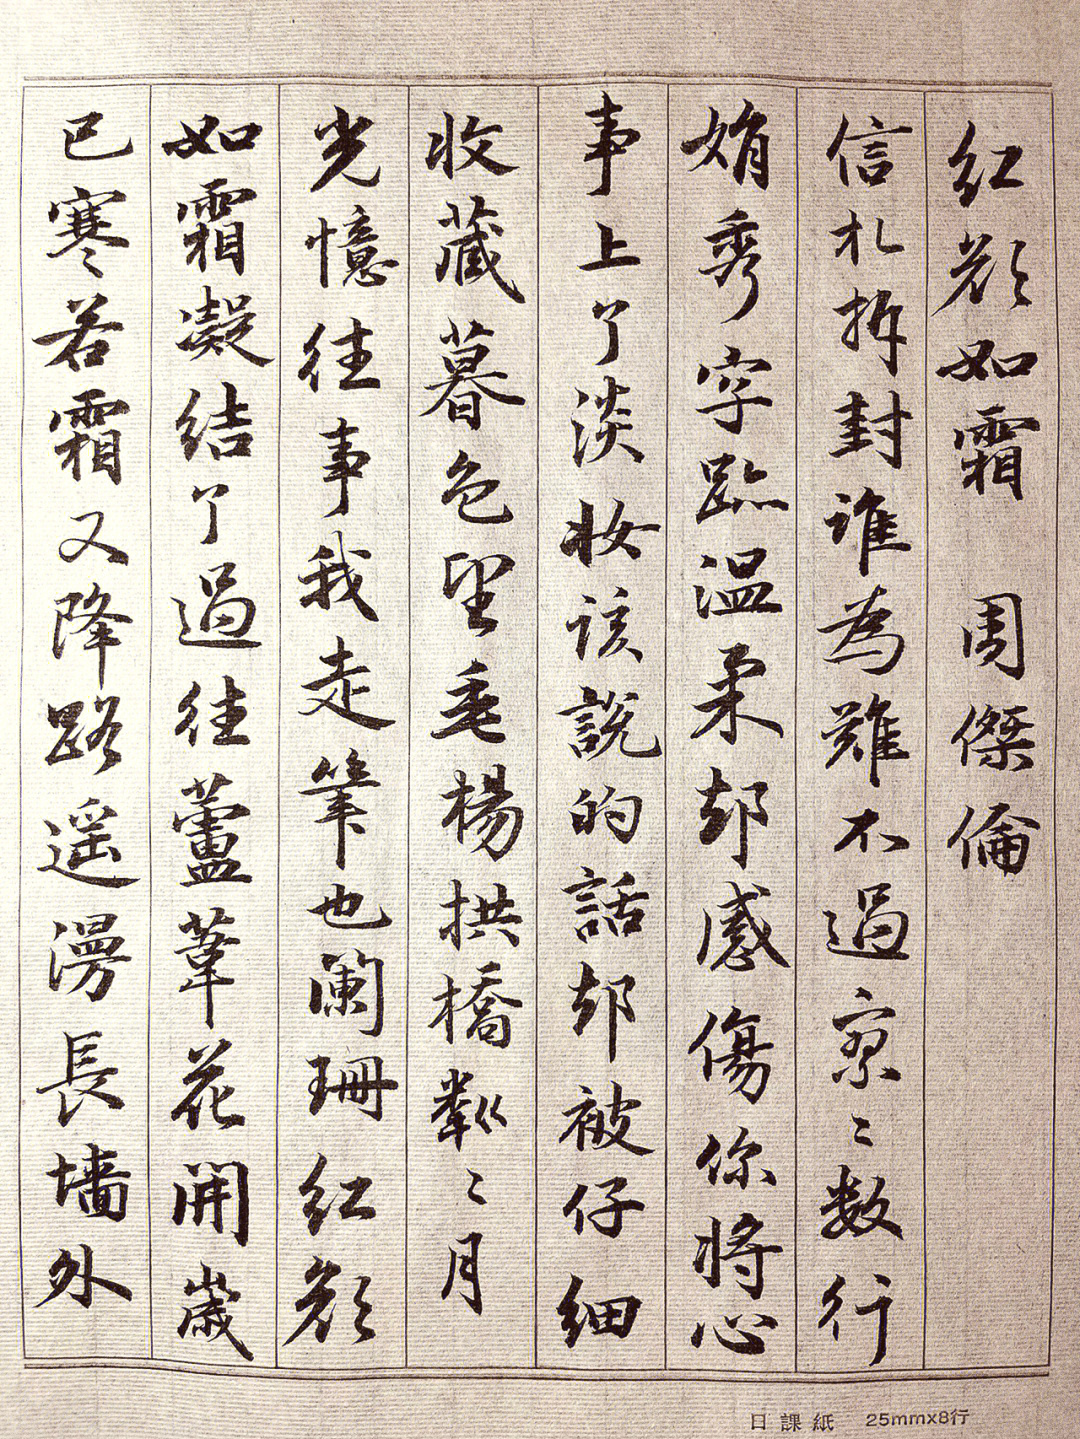 紅顏如霜 周傑倫
信札拆封誰為難不過寥〻数行
娟秀字跡温柔却感傷你将心
事上了淡妝該說的話却被仔細
收藏暮色望垂楊拱橋粼〻月
光憶往事我走筆也闌珊紅顏
如霜凝結了過往蘆葦花開歲
已寒若霜又降路遥漫長墙外
日課紙 25mmx8行